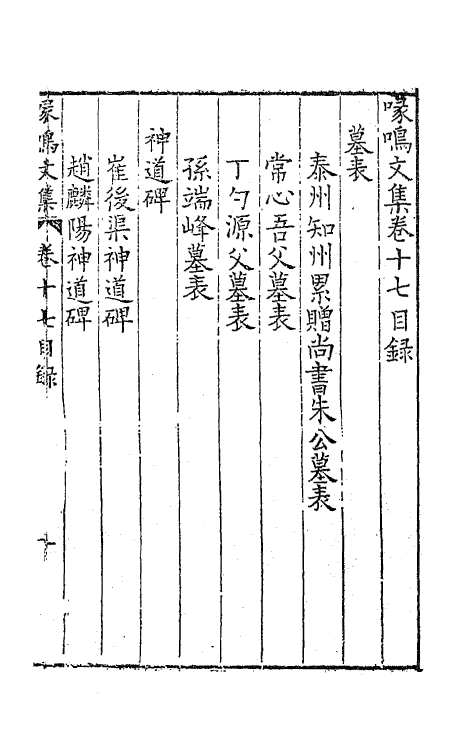 喙鳴文集卷十七目録
墓表
泰州知州累贈尚書朱公墓表
常心吾父墓表
丁勺源父墓表
孫端峰墓表
神道碑
崔後渠神道碑
趙麟陽神道碑
喙鳴文集 卷十七目録